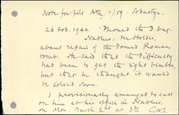 Note for file Atq/1/19. Sebastya.
26 Feb. 1942. Phoned the D. Eng.
Nablus, Mr
about repair of the Roman
court. He said that the difficulty
had been to get the timber,
but that he thought it would
be solved soon.
I provisionally arranged to call
on him at his office in Nablus,
on Mon March 2nd at